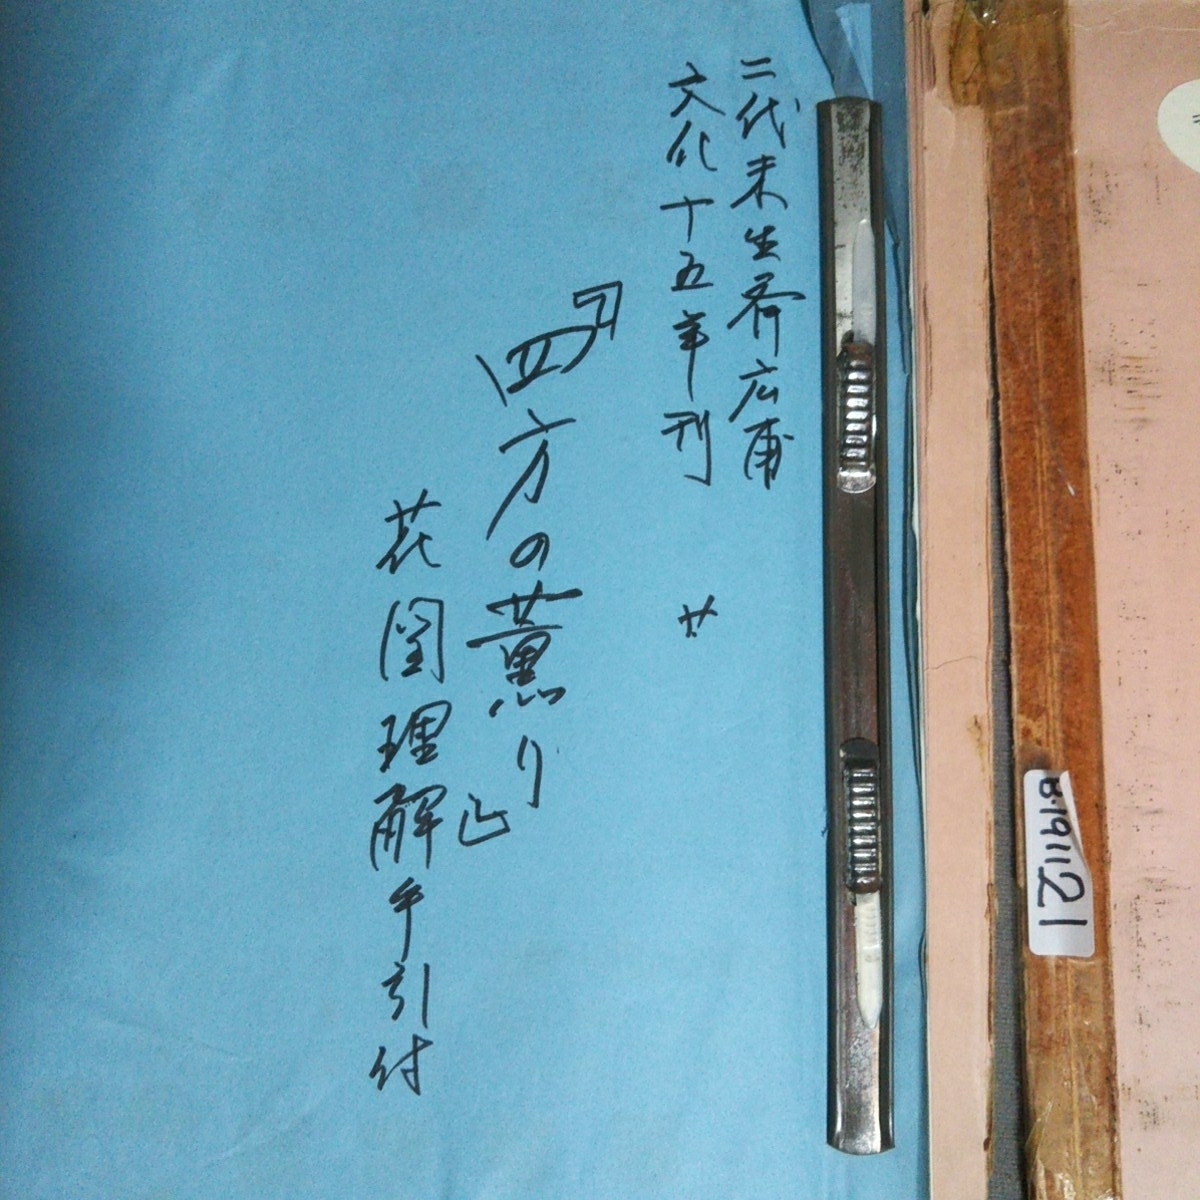 二代未生斎広甫
文化十五年刊 廿
『四方の薫り』
花図理解手引付
B.191121